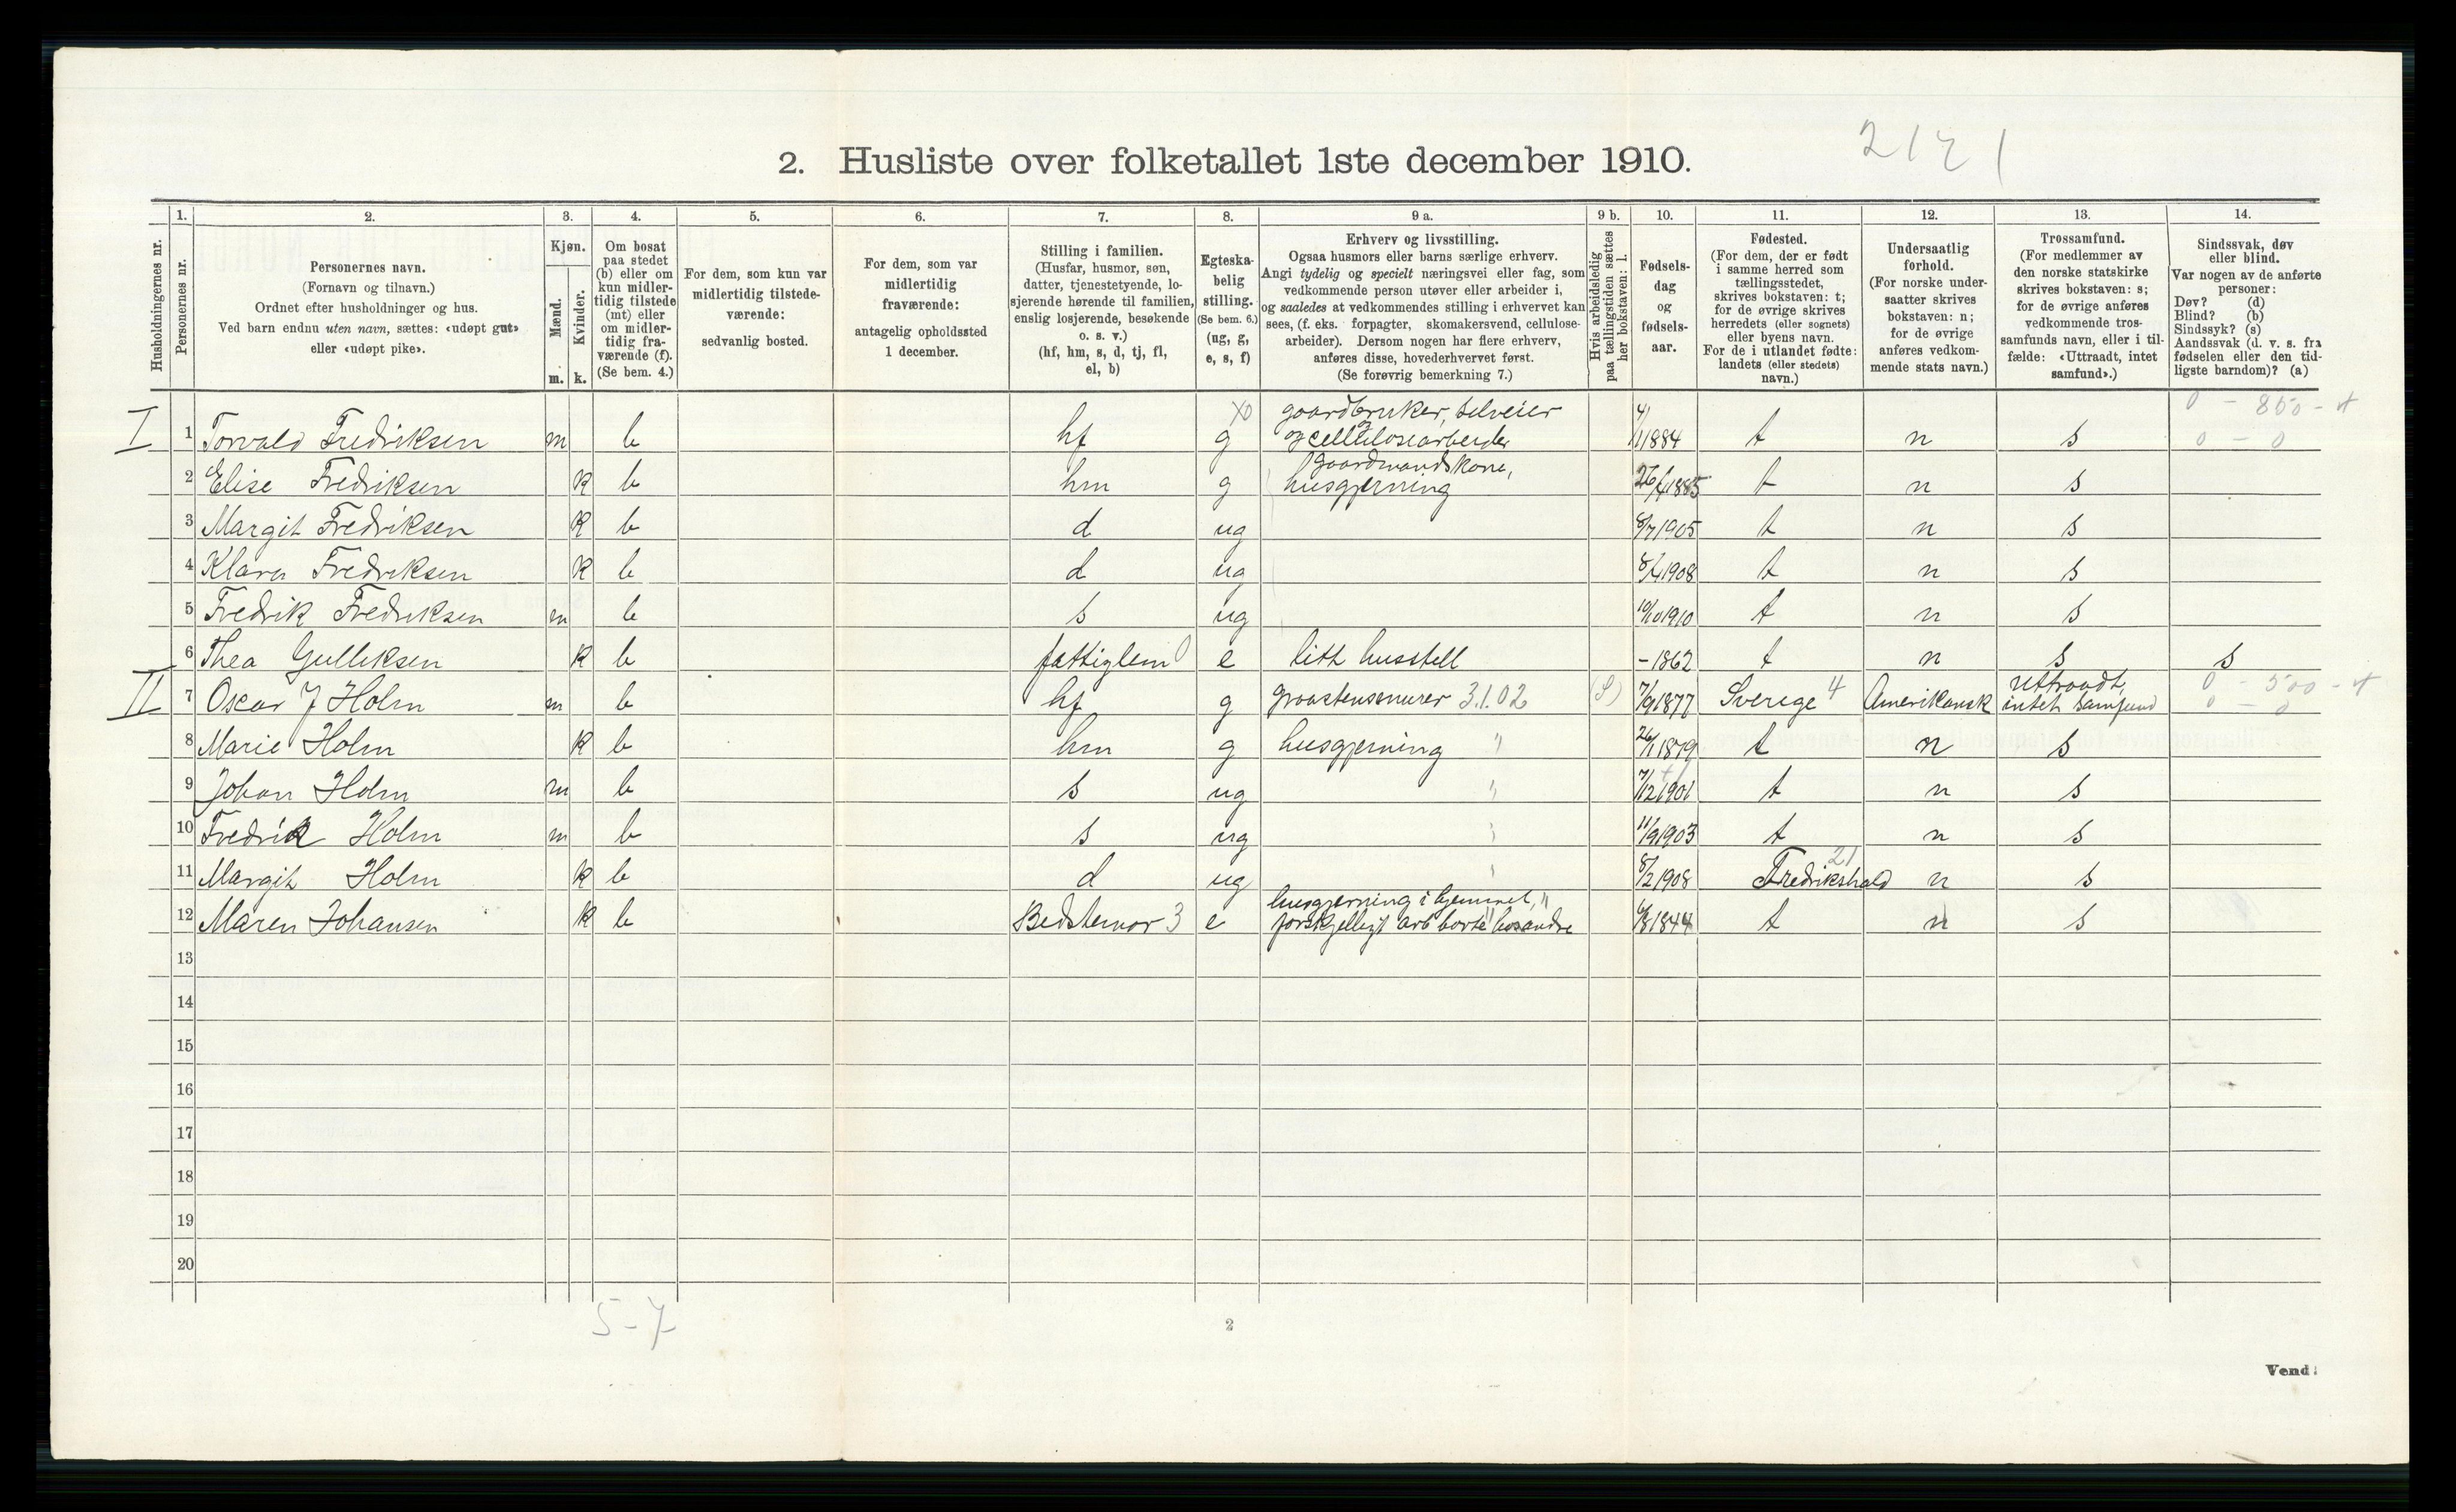 2. Husliste over folketallet 1ste december 1910.
Husholdningernes nr.
1. 2. 3. 4. 5. 6. 7. 8. 9 a. 9 b. 10. 11. 12. 13. 14.
Personernes nr.
Personernes navn.
(Fornavn og tilnavn.)
Ordnet efter husholdninger og hus.
Ved barn endnu uten navn, sættes: «udøpt gut»
eller «udøpt pike».
Kjøn.
Mænd.
Kvinder.
m. k.
Om bosat
paa stedet
(b) eller om
kun midler-
tidig tilstede
(mt) eller
om midler-
tidig fra-
værende (f).
(Se bem. 4.)
For dem, som kun var
midlertidig tilstede-
værende:
sedvanlig bosted.
For dem, som var
midlertidig
fraværende:
antagelig opholdssted
1 december.
Stilling i familien.
(Husfar, husmor, søn,
datter, tjenestetyende, lo-
sjerende hørende til familien,
enslig losjerende, besøkende
o. s. v.)
(hf, hm, s, d, tj, fl,
el, b)
Egteska-
belig
stilling.
(Se bem. 6.)
(ug, g,
e, s, f)
Erhverv og livsstilling.
Ogsaa husmors eller barns særlige erhverv.
Angi tydelig og specielt næringsvei eller fag, som
vedkommende person utøver eller arbeider i,
og saaledes at vedkommendes stilling i erhvervet kan
sees, (f. eks. forpagter, skomakersvend, cellulose-
arbeider). Dersom nogen har flere erhverv,
anføres disse, hovederhvervet først.
(Se forøvrig bemerkning 7.)
Hvis arbeidsledig
paa tællingstiden sættes
her bokstaven: l.
Fødsels-
dag
og
fødsels-
aar.
Fødested.
(For dem, der er født
i samme herred som
tællingsstedet,
skrives bokstaven: t;
for de øvrige skrives
herredets (eller sognets)
eller byens navn.
For de i utlandet fødte:
landets (eller stedets)
navn.)
Undersaatlig
forhold.
(For norske under-
saatter skrives
bokstaven: n;
for de øvrige
anføres vedkom-
mende stats navn.)
Trossamfund.
(For medlemmer av
den norske statskirke
skrives bokstaven: s;
for de øvrige anføres
vedkommende tros-
samfunds navn, eller i til-
fælde: «Uttraadt, intet
samfund».)
Sindssvak, døv
eller blind.
Var nogen av de anførte
personer:
Døv? (d)
Blind? (b)
Sindssyk? (s)
Aandssvak (d. v. s. fra
fødselen eller den tid-
ligste barndom)? (a)
I 1 Torvald Fredriksen m b hf g gaardbruker, selveier og cellulosearbeider 4/1 1884 t n s
0 - 850 - 
0 - 0
2 Elise Fredriksen k b hm g gaardmandskone, husgjerning 26/4 1885 t n s
3 Margit Fredriksen k b d ug 8/7 1905 t n s
4 Klara Fredriksen k b d ug 8/4 1908 t n s
5 Fredrik Fredriksen m b s ug 10/10 1910 t n s
6 Thea Gulliksen k b fattiglem e litt husstell - 1862 t n s s
II 7 Oscar J Holm m b hf g graastensmurer 3.1.02 (S) 7/9 1877 Sverige 4 Amerikansk uttraadt, intet samfund
0 - 500 - 
0 - 0
8 Marie Holm k b hm g husgjerning " 26/11 1879 t n s
9 Johan Holm m b s ug " 7/12 1901 t n s
10 Fredrik Holm m b s ug " 11/9 1903 t n s
11 Margit Holm k b d ug " 8/2 1908 Fredrikshald 21 n s
12 Maren Johansen k b Bedstemor 3 e husgjerning i hjemmet, " forskjelligt arb borte hos andre 6/8 1844 t n s
13
14
15
16
17
18
19
20
5-7
2
Vend!